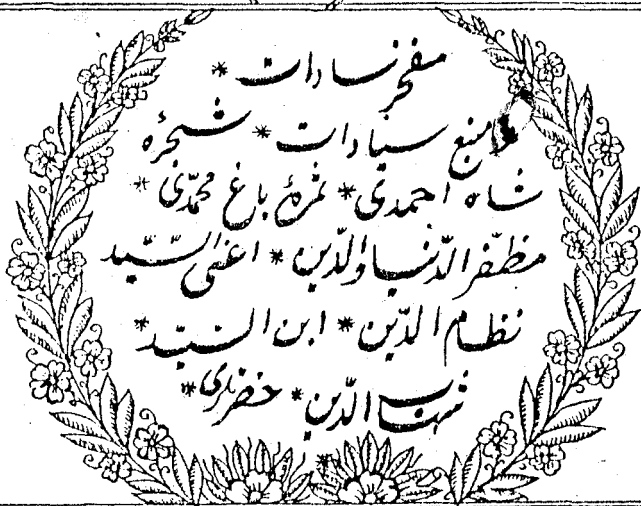 مفخر سادات *
منبع سیادات * شجرهٔ
شاه احمدی * ثمرهٔ باغ محمّدی *
مظفّر الدّنیا والدّین * اعنی السّیّد
نظام الدّین * ابن السّیّد *
شهاب الدّین * خضریدی *